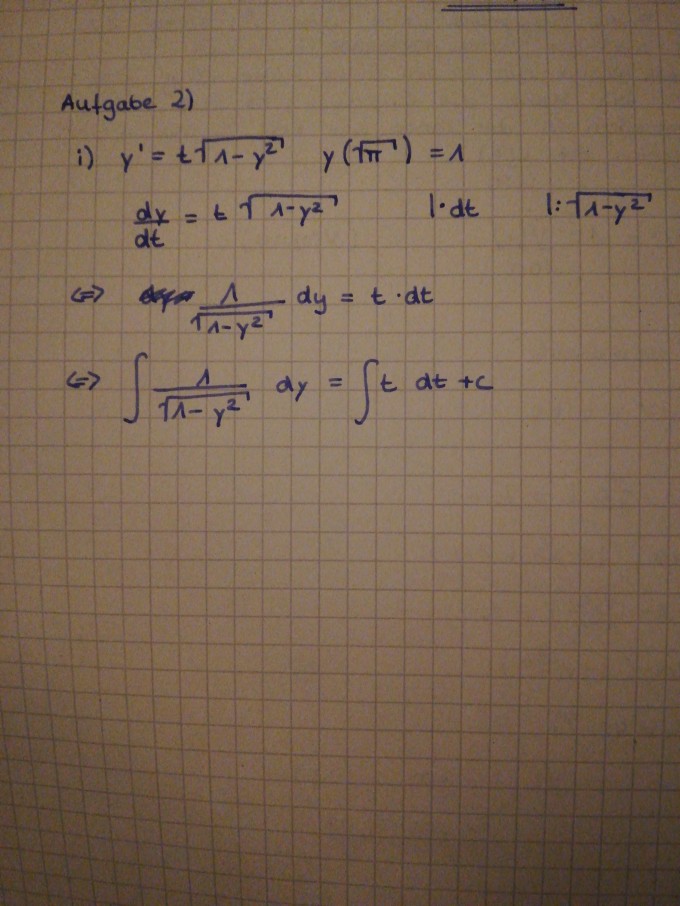 Aufgabe 2)
i) y' = t√(1-y²) y(√π) = 1
dy/dt = t √(1-y²) |·dt |:√(1-y²)
<=> 1/√(1-y²) dy = t · dt
<=> ∫ 1/√(1-y²) dy = ∫ t dt + c